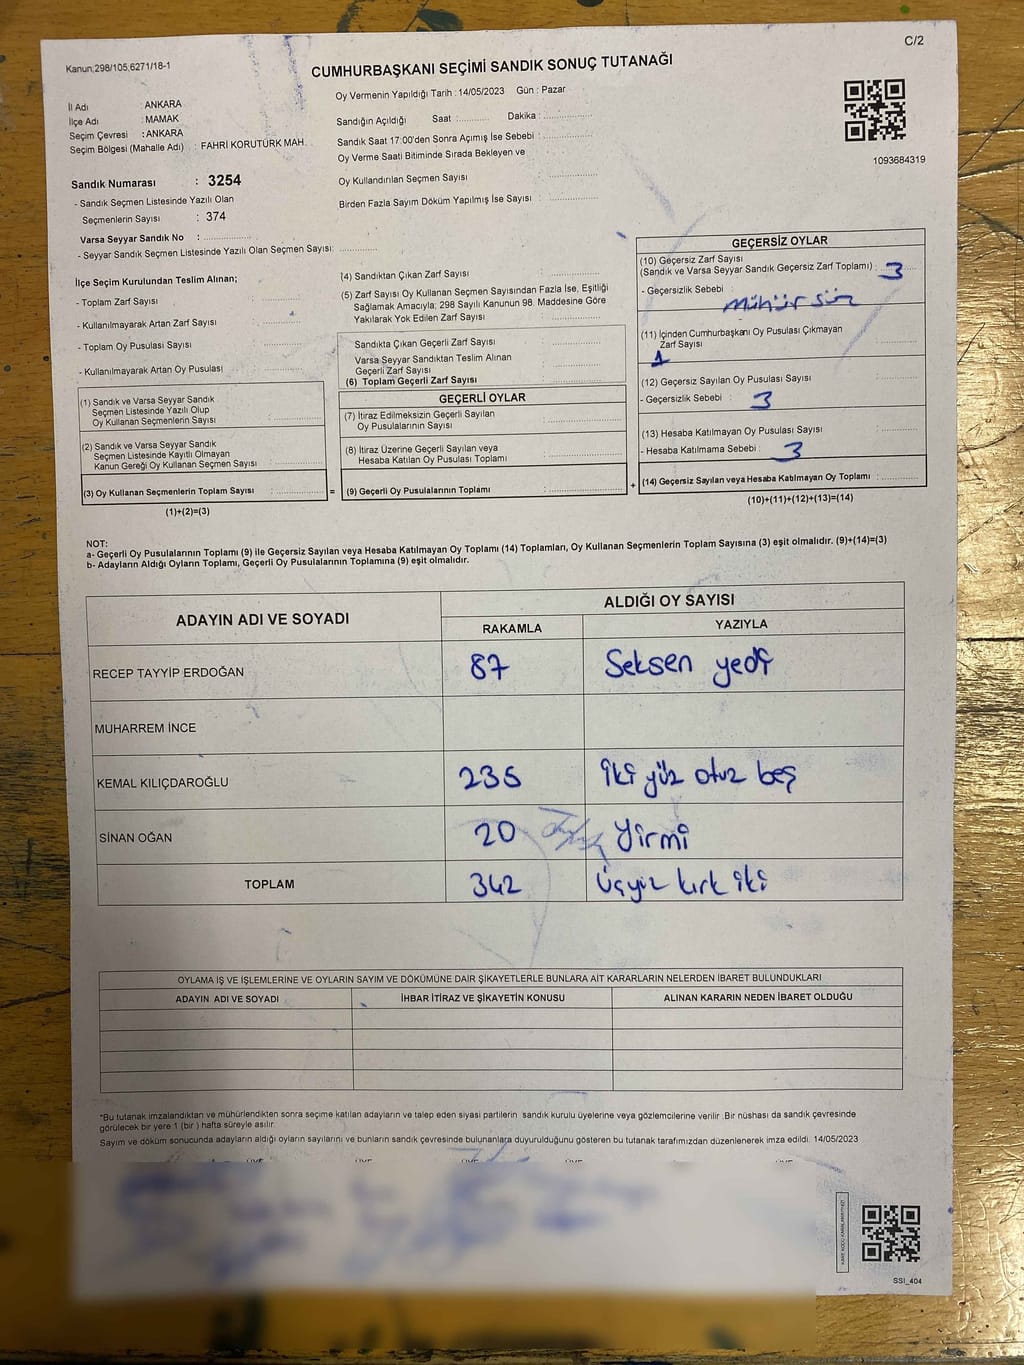 C/2
Kanun:298/105,6271/18-1
CUMHURBAŞKANI SEÇİMİ SANDIK SONUÇ TUTANAĞI
Oy Vermenin Yapıldığı Tarih : 14/05/2023 Gün : Pazar
İl Adı : ANKARA
İlçe Adı : MAMAK
Seçim Çevresi : ANKARA
Seçim Bölgesi (Mahalle Adı) : FAHRİ KORUTÜRK MAH.
Sandığın Açıldığı Saat : Dakika :
Sandık Saat 17:00'den Sonra Açımış İse Sebebi :
Oy Verme Saati Bitiminde Sırada Bekleyen ve
Oy Kullandırılan Seçmen Sayısı
Birden Fazla Sayım Döküm Yapılmış İse Sayısı :
1093684319
Sandık Numarası : 3254
- Sandık Seçmen Listesinde Yazılı Olan
Seçmenlerin Sayısı : 374
Varsa Seyyar Sandık No :
- Seyyar Sandık Seçmen Listesinde Yazılı Olan Seçmen Sayısı:
İlçe Seçim Kurulundan Teslim Alınan;
- Toplam Zarf Sayısı :
- Kullanılmayarak Artan Zarf Sayısı :
- Toplam Oy Pusulası Sayısı :
- Kullanılmayarak Artan Oy Pusulası :
(1) Sandık ve Varsa Seyyar Sandık
Seçmen Listesinde Yazılı Olup
Oy Kullanan Seçmenlerin Sayısı :
(2) Sandık ve Varsa Seyyar Sandık
Seçmen Listesinde Kayıtlı Olmayan
Kanun Gereği Oy Kullanan Seçmen Sayısı :
(3) Oy Kullanan Seçmenlerin Toplam Sayısı :
(1)+(2)=(3)
(4) Sandıktan Çıkan Zarf Sayısı :
(5) Zarf Sayısı Oy Kullanan Seçmen Sayısından Fazla İse, Eşitliği
Sağlamak Amacıyla; 298 Sayılı Kanunun 98. Maddesine Göre
Yakılarak Yok Edilen Zarf Sayısı :
Sandıkta Çıkan Geçerli Zarf Sayısı :
Varsa Seyyar Sandıktan Teslim Alınan
Geçerli Zarf Sayısı :
(6) Toplam Geçerli Zarf Sayısı :
GEÇERLİ OYLAR
(7) İtiraz Edilmeksizin Geçerli Sayılan
Oy Pusulalarının Sayısı :
(8) İtiraz Üzerine Geçerli Sayılan veya
Hesaba Katılan Oy Pusulası Toplamı :
= (9) Geçerli Oy Pusulalarının Toplamı :
GEÇERSİZ OYLAR
(10) Geçersiz Zarf Sayısı
(Sandık ve Varsa Seyyar Sandık Geçersiz Zarf Toplamı) : 3
- Geçersizlik Sebebi : mühürsüz
(11) İçinden Cumhurbaşkanı Oy Pusulası Çıkmayan
Zarf Sayısı
1
(12) Geçersiz Sayılan Oy Pusulası Sayısı :
- Geçersizlik Sebebi : 3
(13) Hesaba Katılmayan Oy Pusulası Sayısı :
- Hesaba Katılmama Sebebi : 3
+ (14) Geçersiz Sayılan veya Hesaba Katılmayan Oy Toplamı :
(10)+(11)+(12)+(13)=(14)
NOT:
a- Geçerli Oy Pusulalarının Toplamı (9) ile Geçersiz Sayılan veya Hesaba Katılmayan Oy Toplamı (14) Toplamları, Oy Kullanan Seçmenlerin Toplam Sayısına (3) eşit olmalıdır. (9)+(14)=(3)
b- Adayların Aldığı Oyların Toplamı, Geçerli Oy Pusulalarının Toplamına (9) eşit olmalıdır.
ADAYIN ADI VE SOYADI ALDIĞI OY SAYISI
RAKAMLA YAZIYLA
RECEP TAYYİP ERDOĞAN 87 Seksen yedi
MUHARREM İNCE
KEMAL KILIÇDAROĞLU 235 iki yüz otuz beş
SİNAN OĞAN 20 Yirmi
TOPLAM 342 Üçyüz kırk iki
OYLAMA İŞ VE İŞLEMLERİNE VE OYLARIN SAYIM VE DÖKÜMÜNE DAİR ŞİKAYETLERLE BUNLARA AİT KARARLARIN NELERDEN İBARET BULUNDUKLARI
ADAYIN ADI VE SOYADI İHBAR İTİRAZ VE ŞİKAYETİN KONUSU ALINAN KARARIN NEDEN İBARET OLDUĞU
*Bu tutanak imzalandıktan ve mühürlendikten sonra seçime katılan adayların ve talep eden siyasi partilerin sandık kurulu üyelerine veya gözlemcilerine verilir. Bir nüshası da sandık çevresinde
görülecek bir yere 1 (bir ) hafta süreyle asılır.
Sayım ve döküm sonucunda adayların aldığı oyların sayılarını ve bunların sandık çevresinde bulunanlara duyurulduğunu gösteren bu tutanak tarafımızdan düzenlenerek imza edildi. 14/05/2023
SSI_404